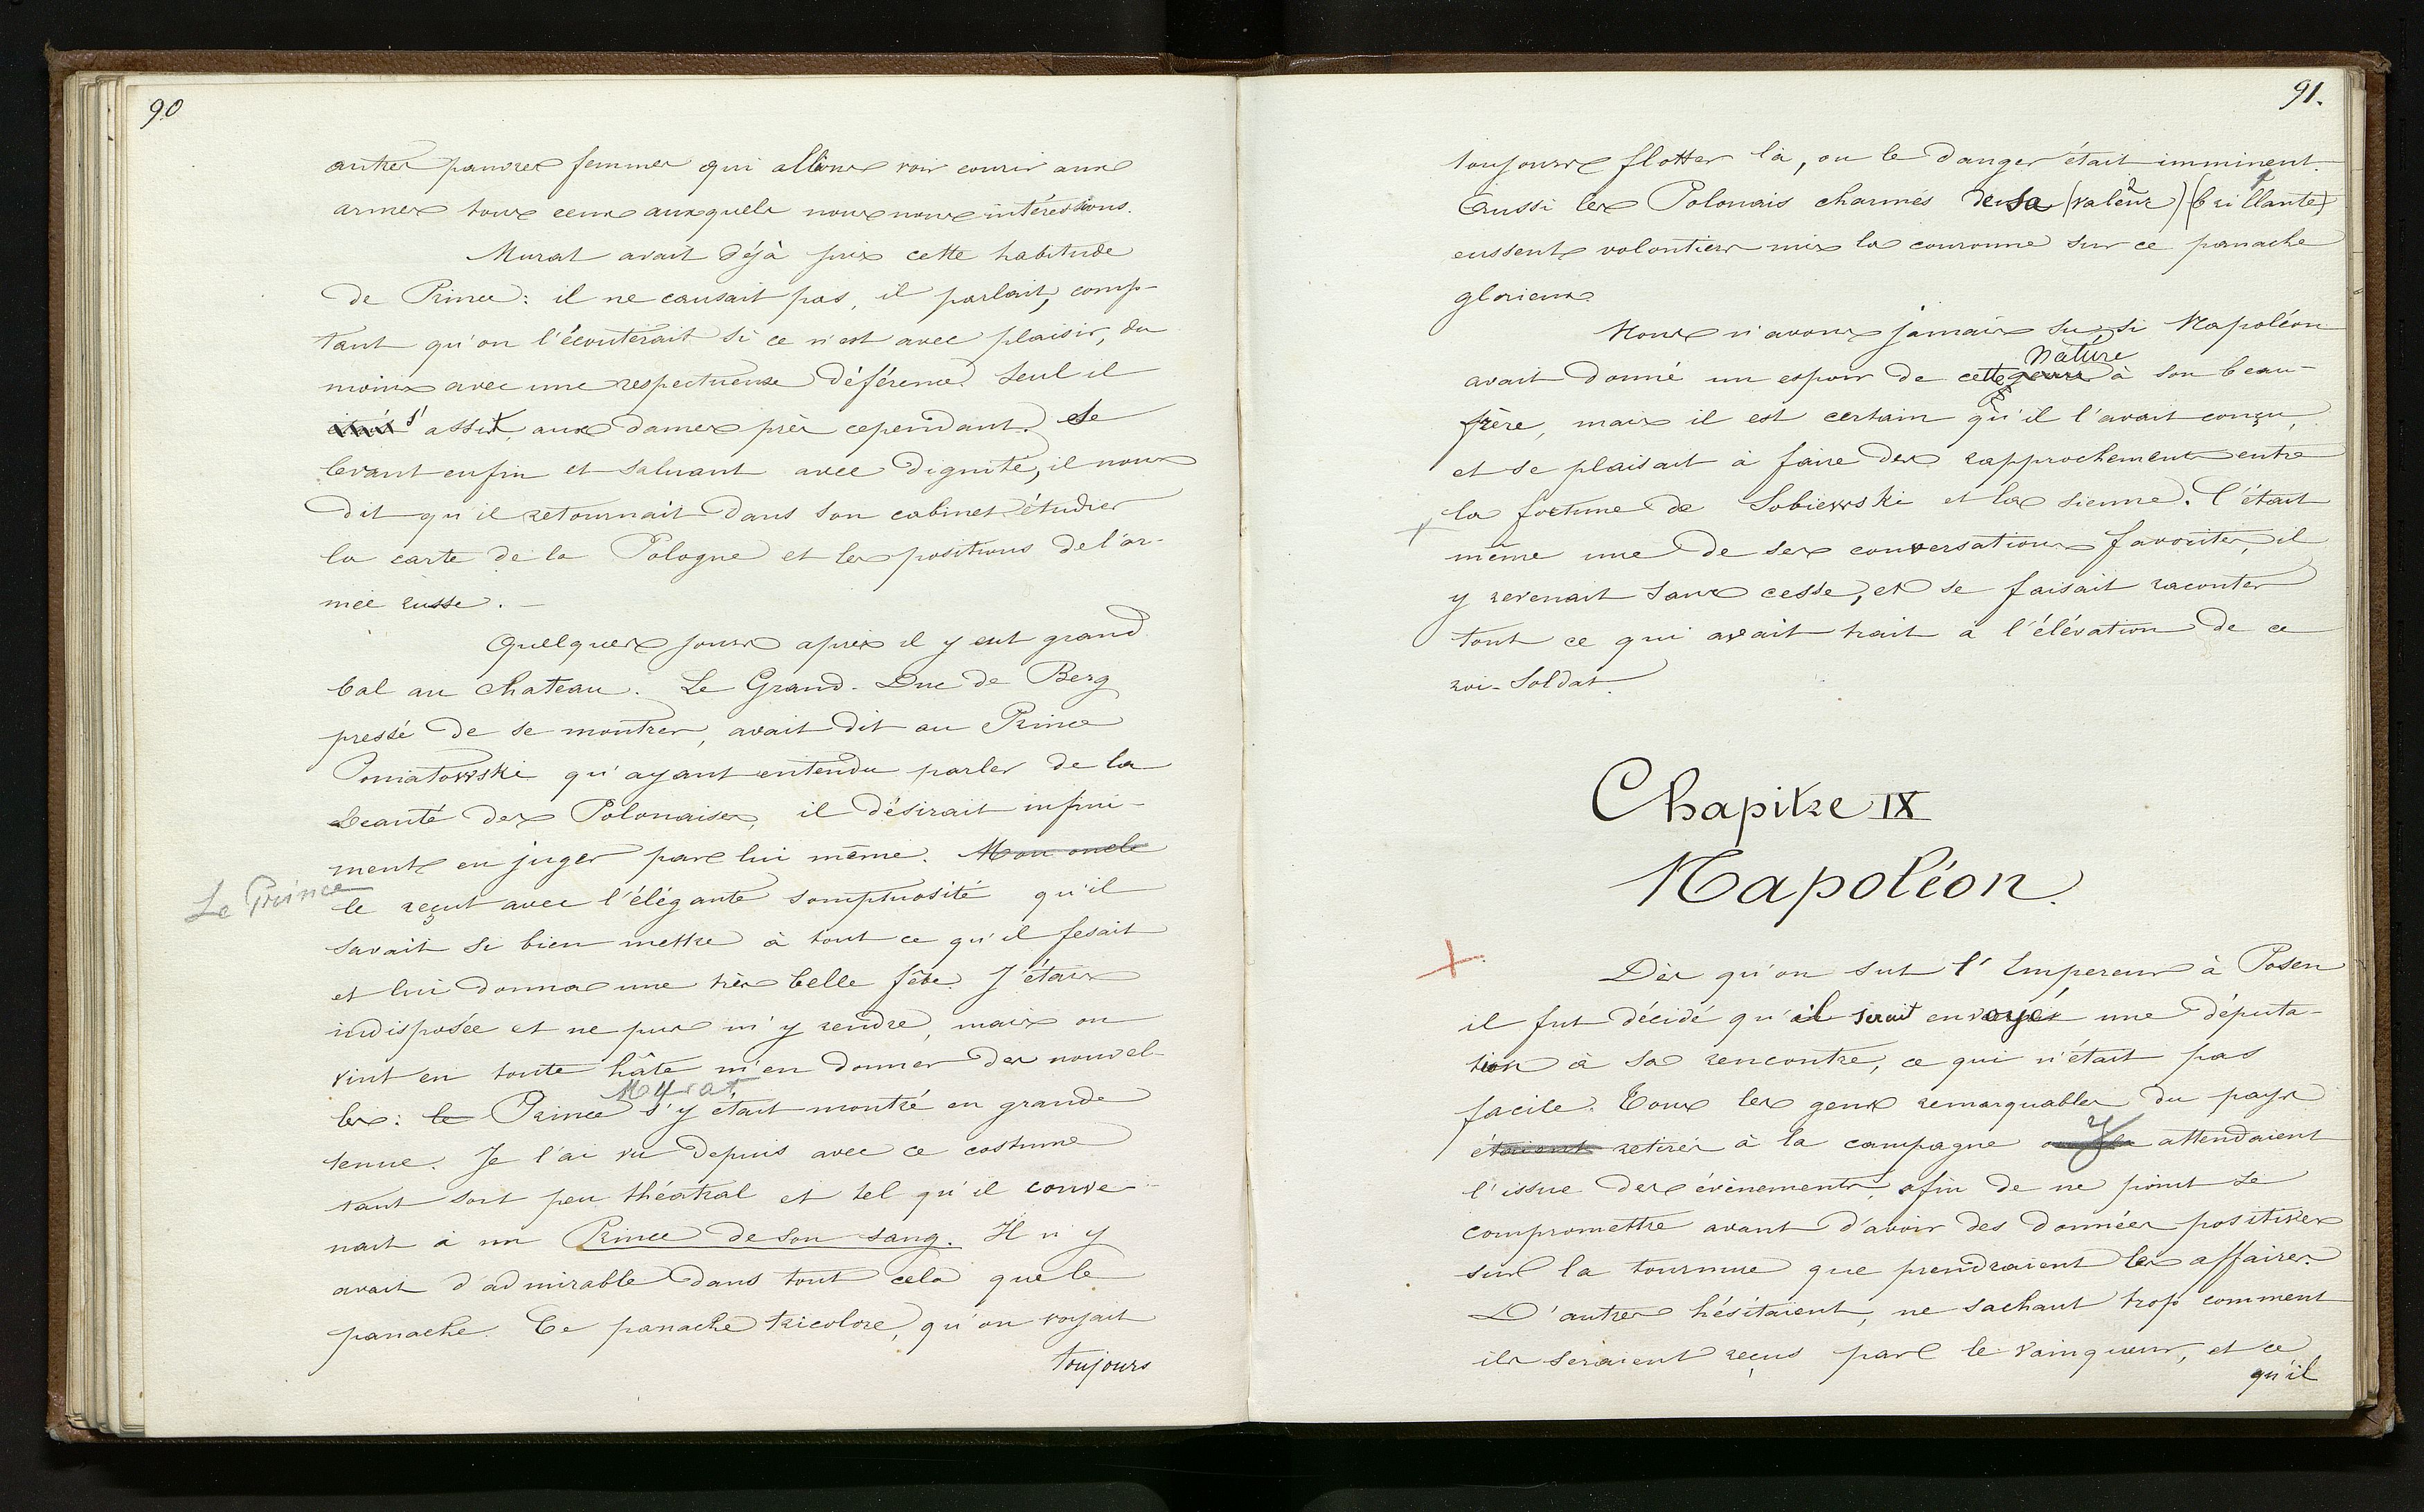 90
autres pauvres femmes qui allions voir courir aux
armes tous ceux auxquels nous nous intéressions.
Murat avait déjà pris cette habitude
de Prince: il ne causait pas, il parlait, comp-
tant qu'on l'écouterait si ce n'est avec plaisir, du
moins avec une respectueuse déférence. Seul il
s'assit, aux dames près cependant. Se
levant enfin et saluant avec dignité, il nous
dit qu'il retournait dans son cabinet étudier
la carte de la Pologne et les positions de l'ar-
mée russe. –
Quelques jours après il y eut grand
bal au chateau. Le Grand-Duc de Berg
pressé de se montrer, avait dit au Prince
Poniatowski qu'ayant entendu parler de la
beauté des Polonaises, il désirait infini-
ment en juger par lui même. Mon oncle
Le Prince
le reçut avec l'élégante somptuosité qu'il
savait si bien mettre à tout ce qu'il fesait
et lui donna une très belle fête. J'étais
indisposée et ne pus m'y rendre, mais on
vint en toute hâte m'en donner des nouvel-
Murat
les: le Prince s'y était montré en grande
tenue. Je l'ai vu depuis avec ce costume
tant soit peu théatral et tel qu'il conve-
nait à un Prince de son sang. Il n'y
avait d'admirable dans tout cela que le
panache. Ce panache tricolore, qu'on voyait
toujours
91.
toujours flotter là, ou le danger était imminent.
Aussi les Polonais charmés de sa (valeur) (brillante)
eussent volontiers mis la couronne sur ce panache
glorieux.
Nous n'avons jamais su, si Napoléon
nature
avait donné un espoir de cette genre à son beau-
frère, mais il est certain qu'il l'avait conçu,
et se plaisait à faire des rapprochements entre
la fortune de Sobiewski et la sienne. C'était
même une de ses conversations favorites, il
y revenait sans cesse, et se faisait raconter
tout ce qui avait trait à l'élévation de ce
roi-soldat.
Chapitre IX
Napoléon.
Dès qu'on sut l'Empereur à Posen
il fut décidé qu'il serait envoyé une députa-
tion à sa rencontre, ce qui n'était pas
facile. Tous les gens remarquables du pays
étaient retirés à la campagne y attendaient
l'issue des évènements, afin de ne point se
compromettre avant d'avoir des données positives
sur la tournure que prendraient les affaires.
D'autres hésitaient, ne sachant trop comment
ils seraient reçus par le vainqueur, et ce
qu'il